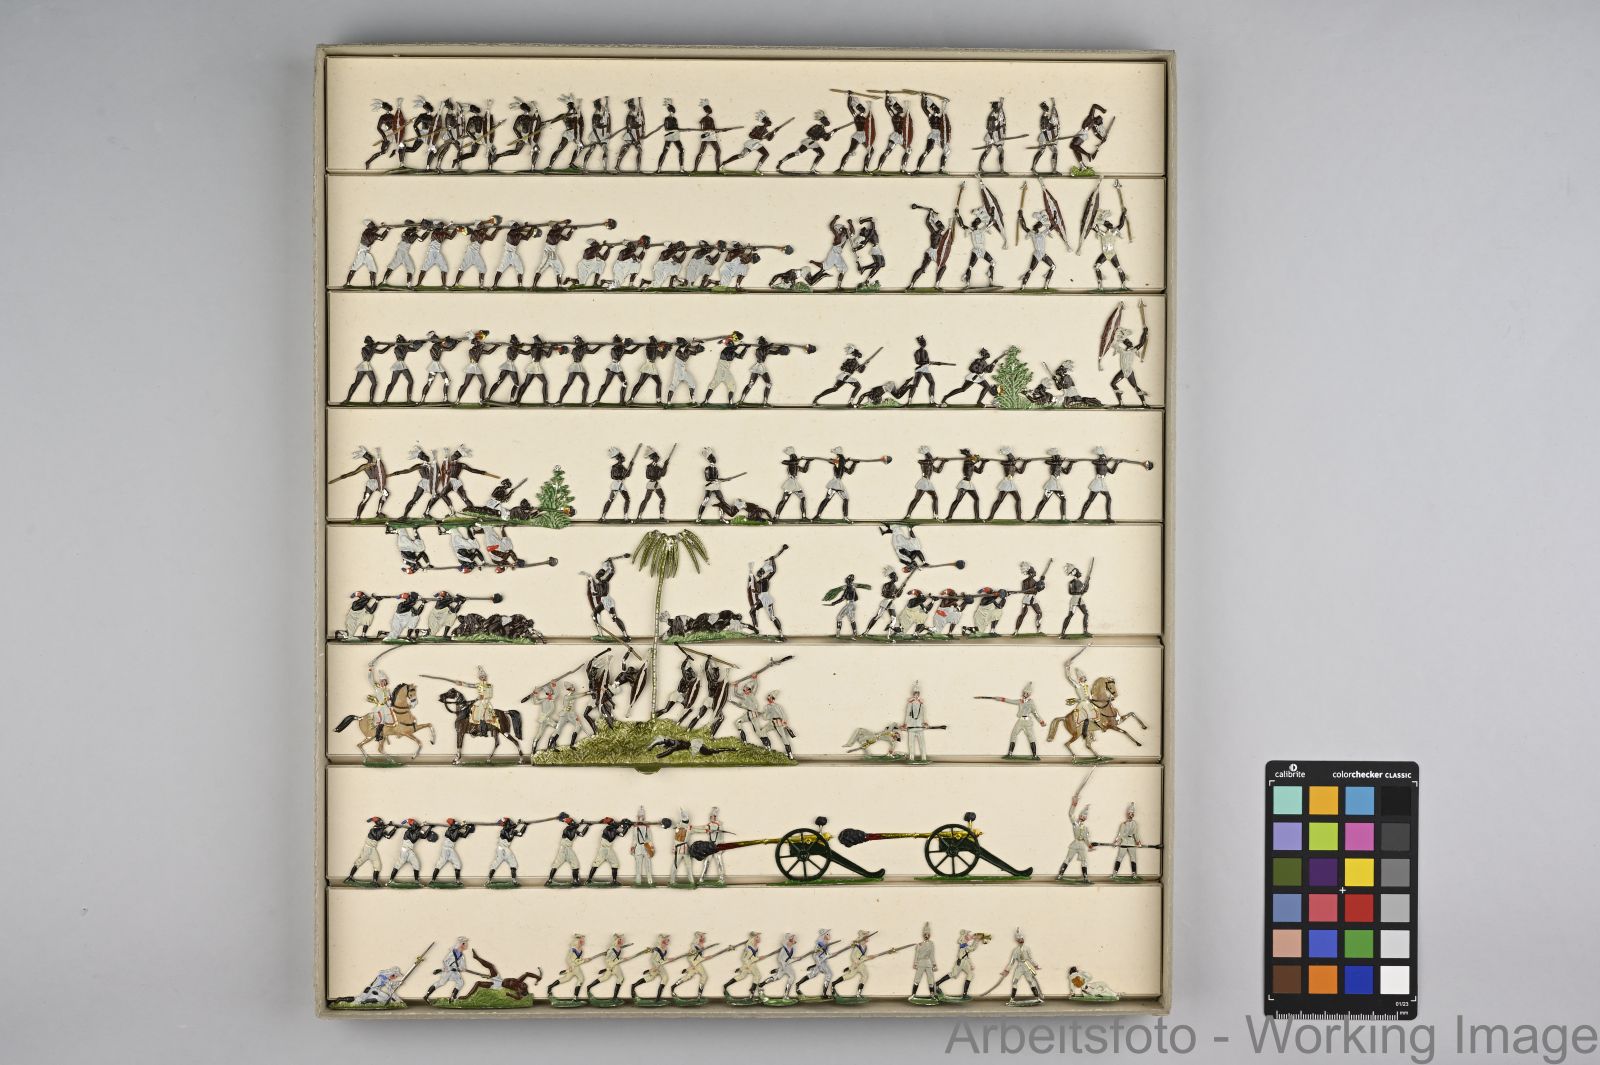 calibrite
colorchecker CLASSIC
01/23
mm
Arbeitsfoto - Working Image